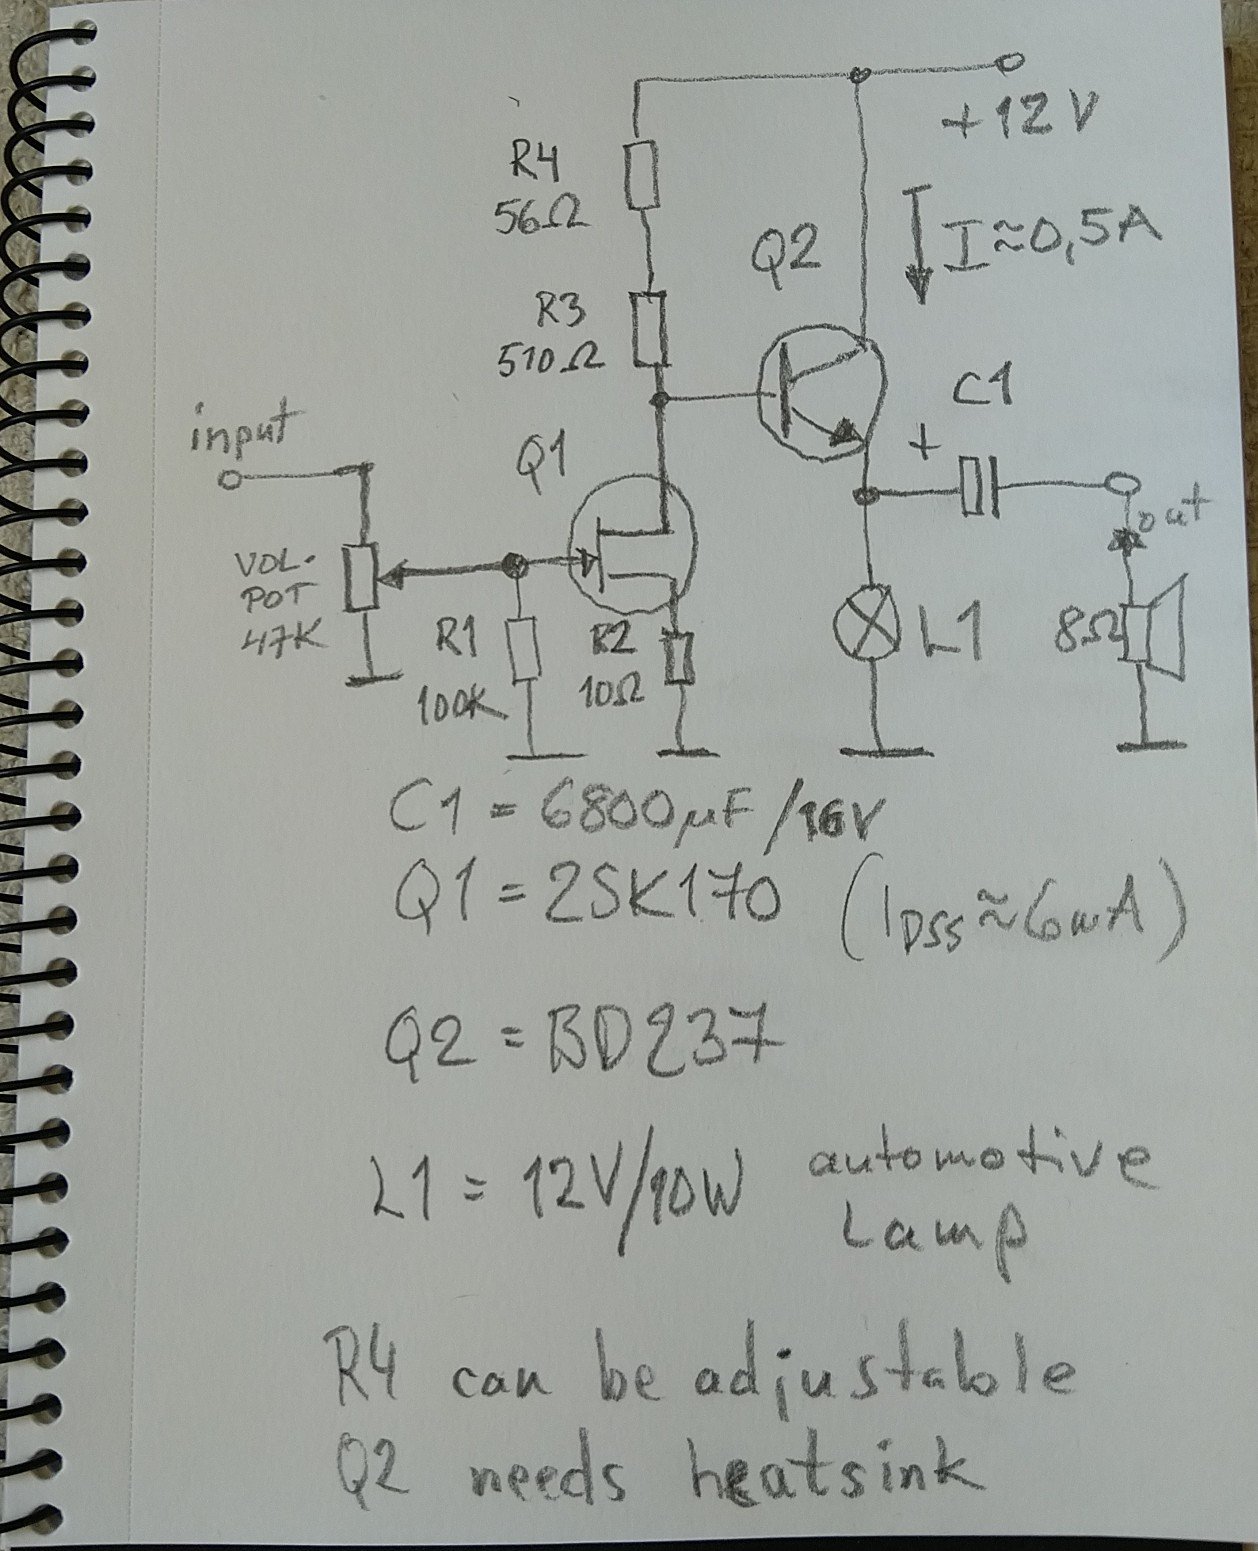 +12V
R4
56Ω
I≈0,5A
Q2
R3
510Ω
C1
+
input
Q1
out
VOL.
POT
47K
R1
100K
R2
10Ω
L1
8Ω
C1 = 6800µF/16V
Q1 = 2SK170 (IDSS≈6mA)
Q2 = BD237
L1 = 12V/10W automotive
Lamp
R4 can be adjustable
Q2 needs heatsink